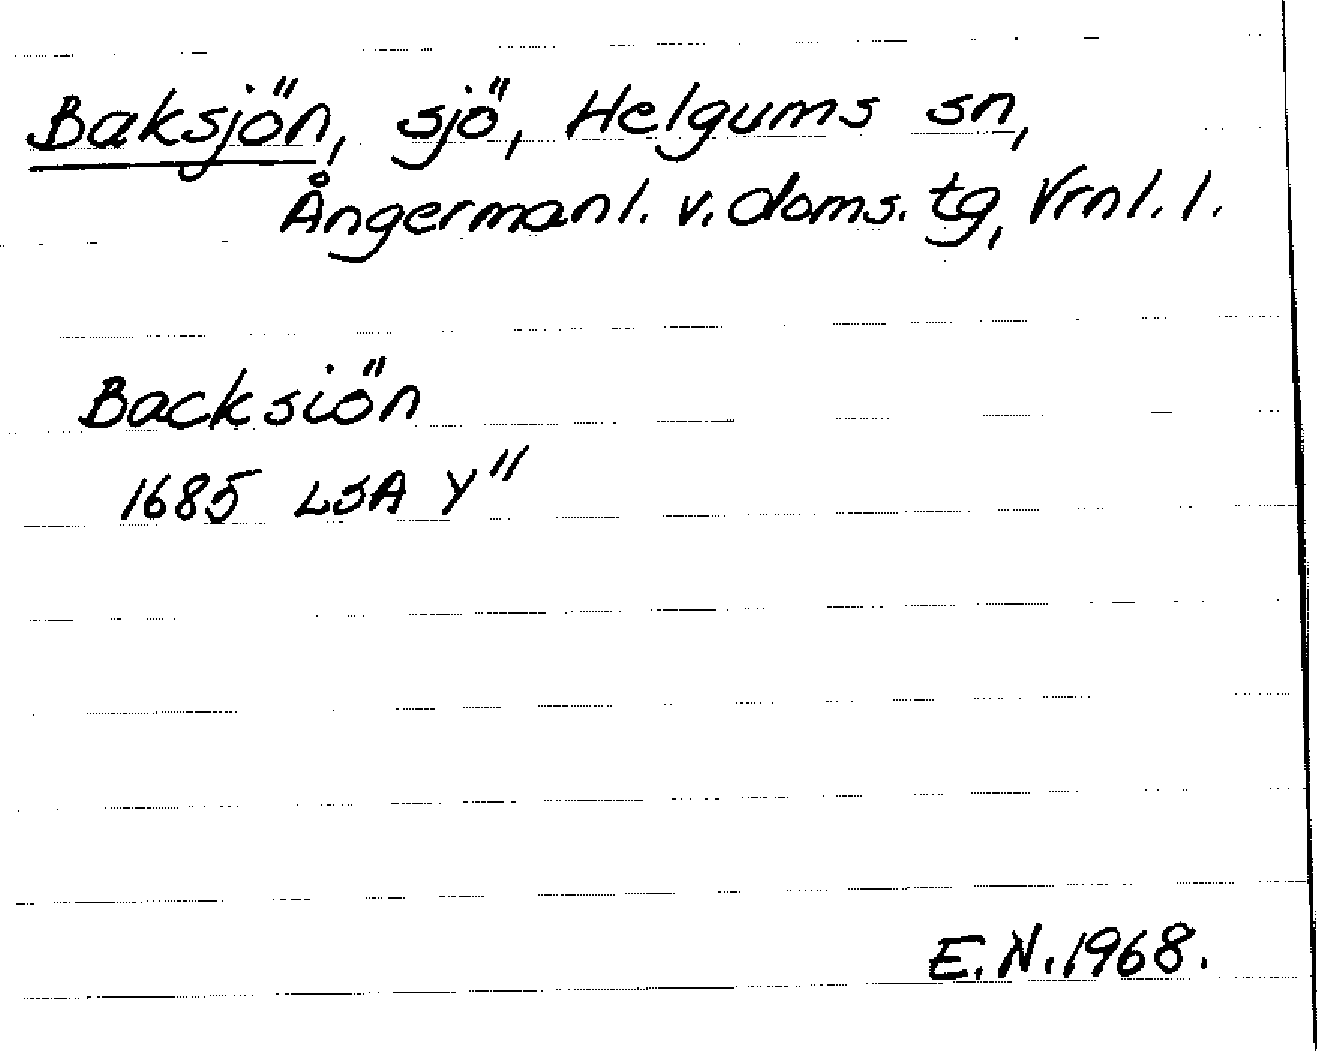 Baksjön, sjö, Helgums sn,
Ångermanl. v. doms. tg, Vrnl. l.
Backsiön
1685 LSA Y"
E.N. 1968.